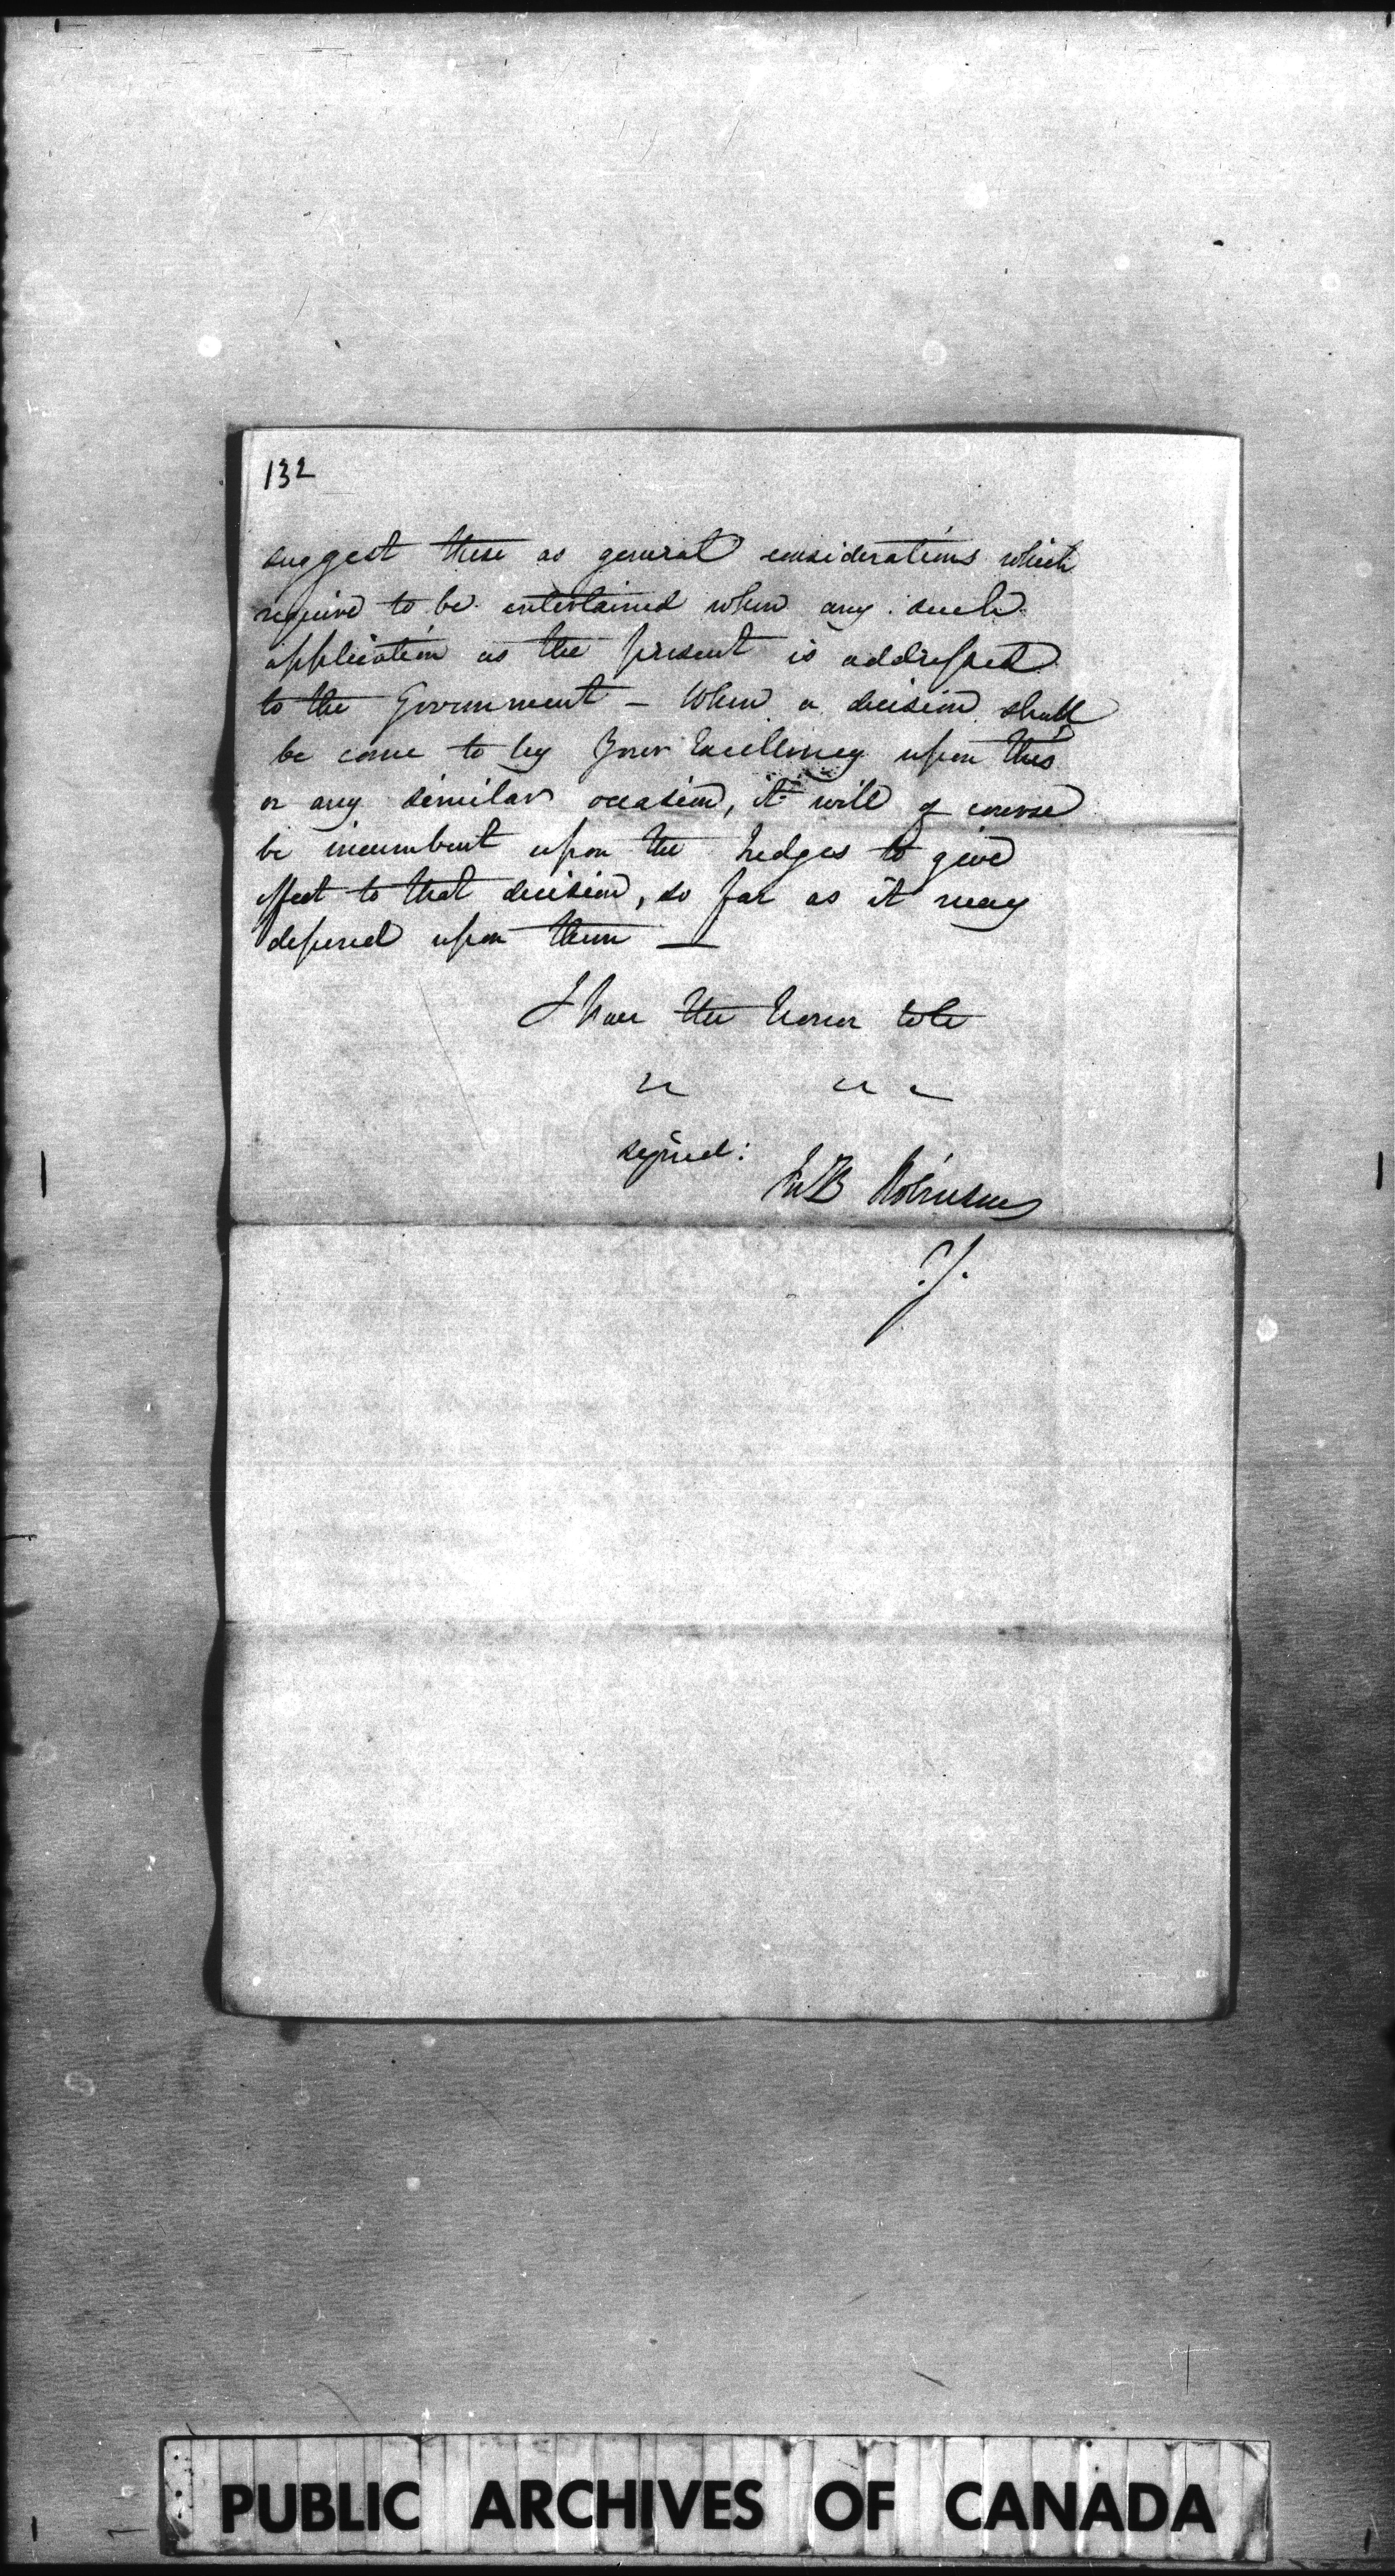 132
suggest these as general considerations which
require to be entertained when any such
application as the present is addressed
to the Government – When a decision shall
be come to by Your Excellency upon this
or any similar occasion, it will of course
be incumbent upon the Judges to give
effect to that decision, so far as it may
depend upon them —
I have the honor to be
signed:
Jn B Robinson
PUBLIC ARCHIVES OF CANADA